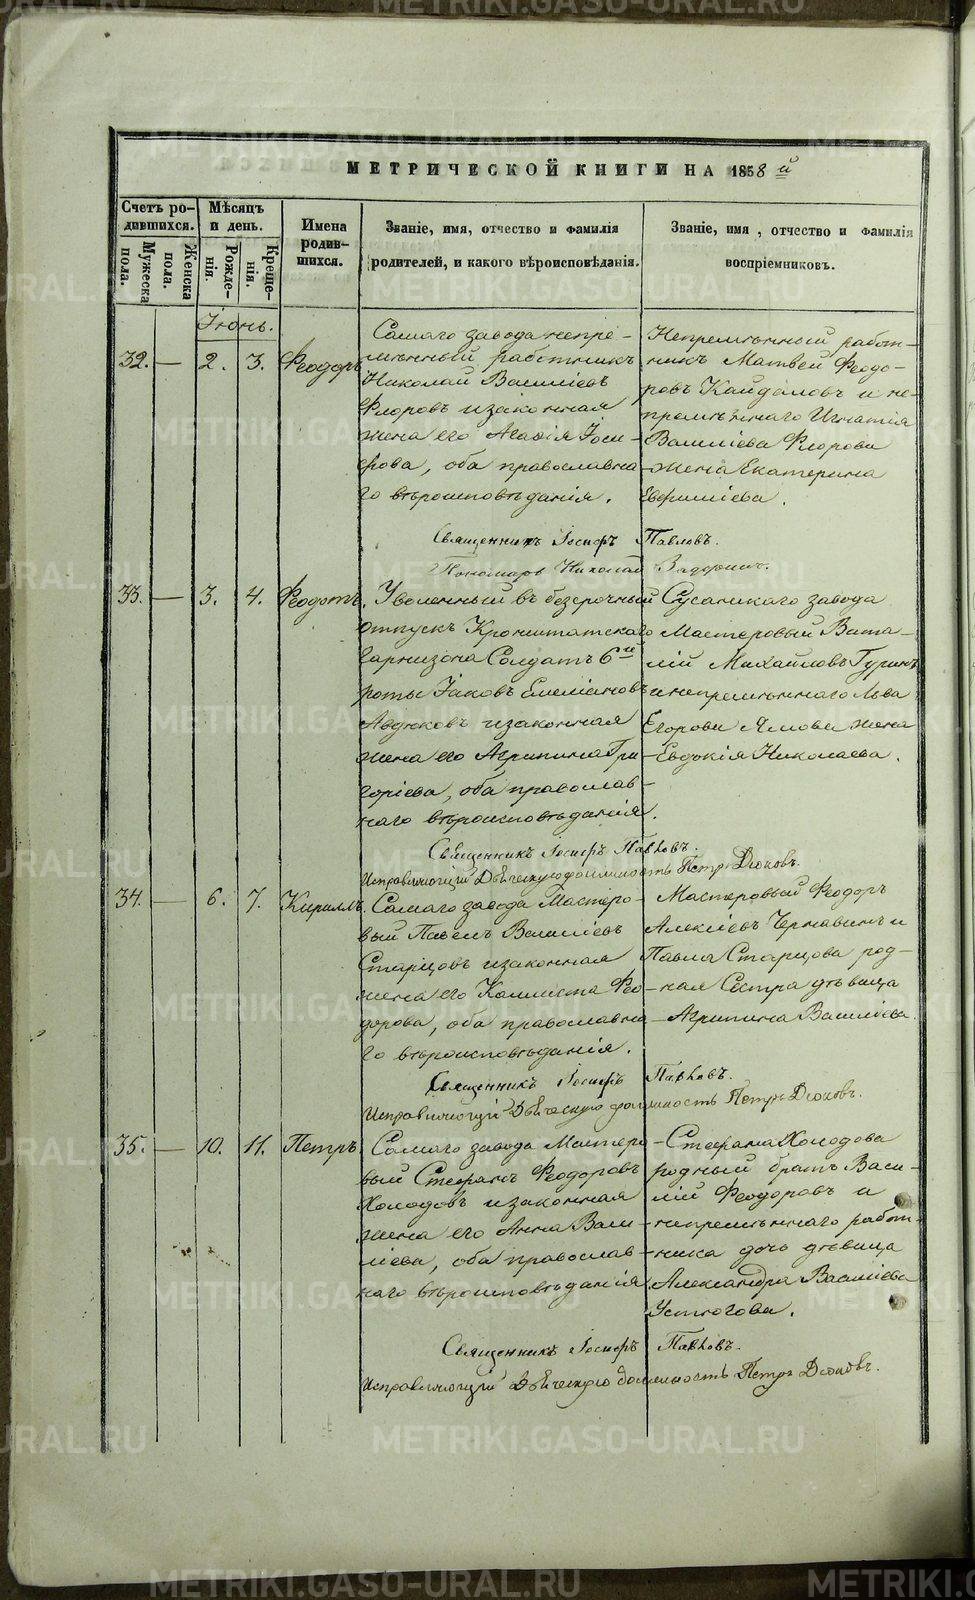 МЕТРИЧЕСКОЙ КНИГИ НА 1858й
Счетъ ро-
дившихся.
Мужеска
пола.
Женска
пола.
Мѣсяцъ
и день.
Рожде-
нія.
Креще-
нія.
Имена
родив-
шихся.
Званіе, имя, отчество и фамилія
родителей, и какого вѣроисповѣданія.
Званіе, имя, отчество и фамилія
воспріемниковъ.
Іюнь.
32. — 2. 3. Феодоръ
Самаго завода непре-
мѣнный работникъ
Николай Василіевъ
Флоровъ и законная
жена его Агафія Іоси-
фова, оба православна-
го вѣроисповѣданія.
Непремѣнный работ-
никъ Матвей Феодо-
ровъ Кайдаловъ и не-
премѣннаго Игнатія
Василіева Флорова
жена Екатерина
Евфиміева.
Священникъ Іосифъ Павловъ.
Пономарь Николай
33. — 3. 4. Феодотъ.
Уволенный въ безсрочный
отпускъ Кронштатскаго
гарнизона Солдатъ 6й
роты Іаковъ Емеліановъ
Авдюковъ и законная
жена его Агрипина Гри-
горіева, оба православ-
наго вѣроисповѣданія.
Сусанскаго завода
Мастеровый Вита-
лій Михайловъ Гуринъ
и непремѣннаго Льва
Егорова Ямова жена
Евдокія Николаева.
Священникъ Іосифъ Павловъ.
Исправляющій Дьяческую должность Петръ Дюковъ.
34. — 6. 7. Кириллъ.
Самаго завода Мастеро-
вый Павелъ Василіевъ
Старцовъ и законная
жена его Каллиста Фео-
дорова, оба православна-
го вѣроисповѣданія.
Мастеровый Феодоръ
Алексіевъ Чернавинъ и
Павла Старцова род-
ная Сестра дѣвица
Агрипина Василіева.
Священникъ Іосифъ Павловъ.
Исправляющій Дьяческую должность Петръ Дюковъ.
35. — 10. 11. Петръ
Самаго завода Мастеро-
вый Стефанъ Феодоровъ
Холодовъ и законная
жена его Анна Васи-
ліева, оба православ-
наго вѣроисповѣданія
Стефана Холодова
родный братъ Васи-
лій Феодоровъ и
непремѣннаго работ-
ника дочь дѣвица
Александра Василіева
Устюгова.
Священникъ Іосифъ Павловъ.
Исправляющій Дьяческую должность Петръ Дюковъ.
METRIKI.GASO-URAL.RU